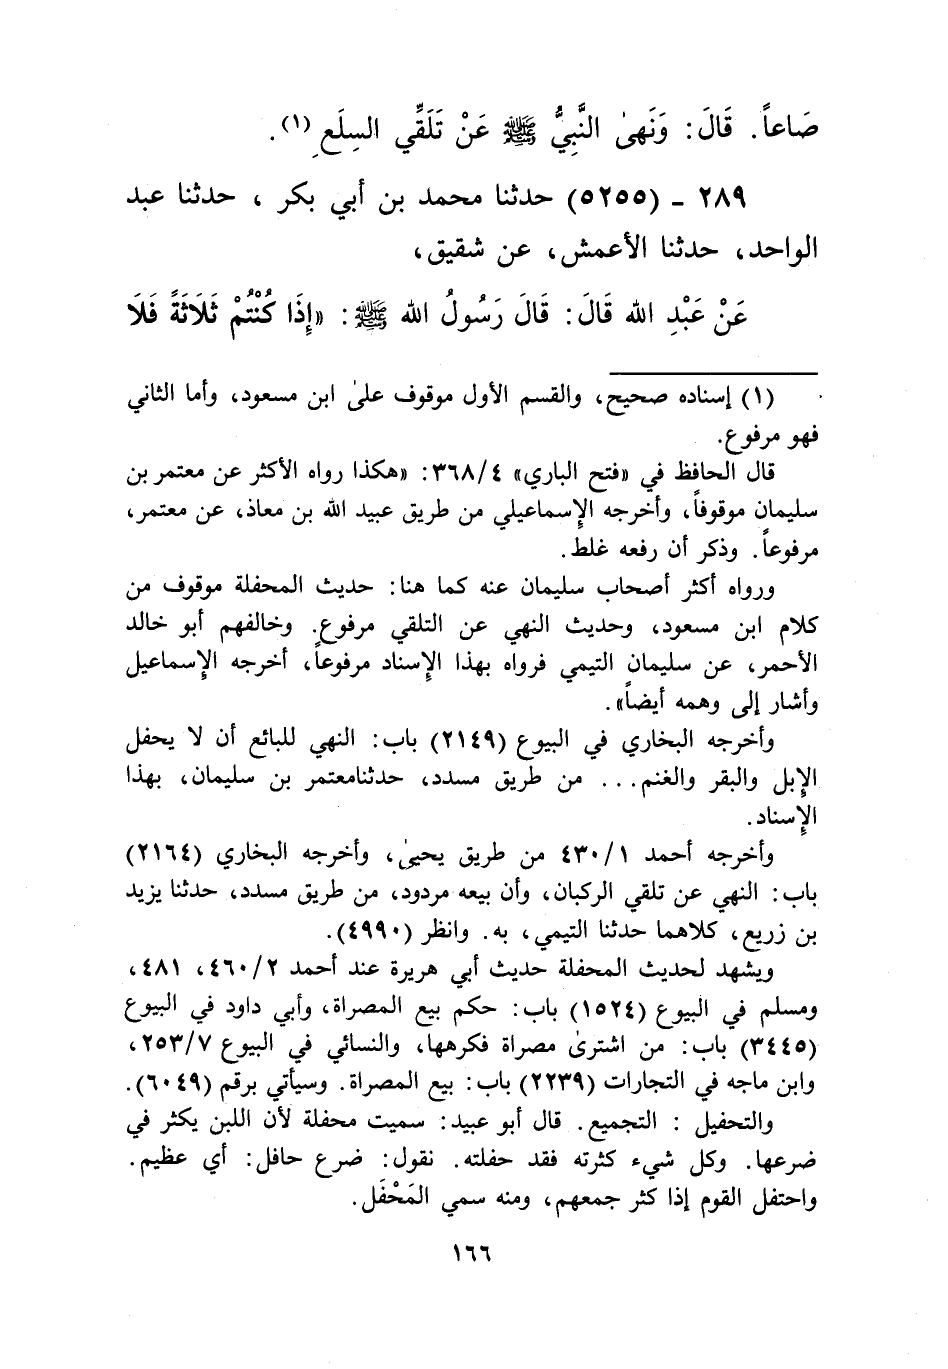 صَاعاً. قَالَ: وَنَهىٰ النَّبِيُّ ﷺ عَنْ تَلَقِّي السِلَعِ (١).
٢٨٩ ـ (٥٢٥٥) حدثنا محمد بن أبي بكر ، حدثنا عبد
الواحد، حدثنا الأعمش، عن شقيق،
عَنْ عَبْدِ الله قَالَ: قَالَ رَسُولُ الله ﷺ: «إِذَا كُنْتُمْ ثَلَاثَةً فَلَا
(١) إسناده صحيح، والقسم الأول موقوف علىٰ ابن مسعود، وأما الثاني
فهو مرفوع.
قال الحافظ في «فتح الباري» ٣٦٨/٤: «هكذا رواه الأكثر عن معتمر بن
سليمان موقوفاً، وأخرجه الإسماعيلي من طريق عبيد الله بن معاذ، عن معتمر،
مرفوعاً. وذكر أن رفعه غلط.
ورواه أكثر أصحاب سليمان عنه كما هنا: حديث المحفلة موقوف من
كلام ابن مسعود، وحديث النهي عن التلقي مرفوع. وخالفهم أبو خالد
الأحمر، عن سليمان التيمي فرواه بهذا الإسناد مرفوعاً، أخرجه الإسماعيل
وأشار إلى وهمه أيضاً».
وأخرجه البخاري في البيوع (٢١٤٩) باب: النهي للبائع أن لا يحفل
الإبل والبقر والغنم... من طريق مسدد، حدثنامعتمر بن سليمان، بهذا
الإسناد.
وأخرجه أحمد ٤٣٠/١ من طريق يحيىٰ، وأخرجه البخاري (٢١٦٤)
باب: النهي عن تلقي الركبان، وأن بيعه مردود، من طريق مسدد، حدثنا يزيد
بن زريع، كلاهما حدثنا التيمي، به. وانظر (٤٩٩٠).
ويشهد لحديث المحفلة حديث أبي هريرة عند أحمد ٤٦٠/٢، ٤٨١،
ومسلم في البيوع (١٥٢٤) باب: حكم بيع المصراة، وأبي داود في البيوع
(٣٤٤٥) باب: من اشترىٰ مصراة فكرهها، والنسائي في البيوع ٢٥٣/٧،
وابن ماجه في التجارات (٢٢٣٩) باب: بيع المصراة. وسيأتي برقم (٦٠٤٩).
والتحفيل : التجميع. قال أبو عبيد: سميت محفلة لأن اللبن يكثر في
ضرعها. وكل شيء كثرته فقد حفلته. نقول: ضرع حافل: أي عظيم.
واحتفل القوم إذا كثر جمعهم، ومنه سمي المَحْفَل.
١٦٦